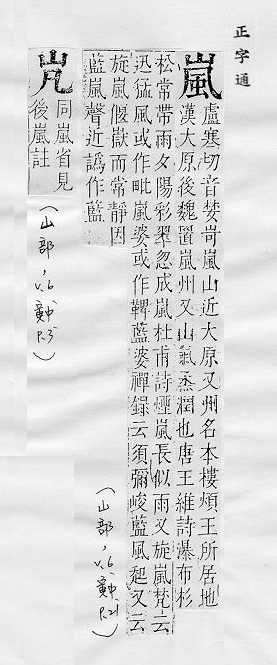 正字通
嵐
盧塞切音婪岢嵐山近大原又州名本樓煩王所居地
漢大原後魏置嵐州又山氣烝潤也唐王維詩瀑布杉
松常帶雨夕陽彩翠忽成嵐杜甫詩煙嵐長似雨又旋嵐梵云
迅猛風或作毗嵐婆或作鞞藍婆禪錄云須彌峻藍風起又云
旋嵐偃嶽而常靜因
藍嵐聲近譌作藍
(山部, v.6, P.21)
同嵐省見
後嵐註
(山部, v.6, P.3)